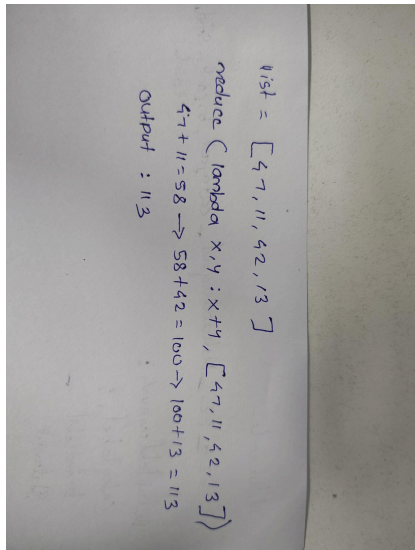 list = [47, 11, 42, 13]
reduce (lambda x,y : x+y, [47, 11, 42, 13])
47+11=58 → 58+42=100 → 100+13=113
output : 113